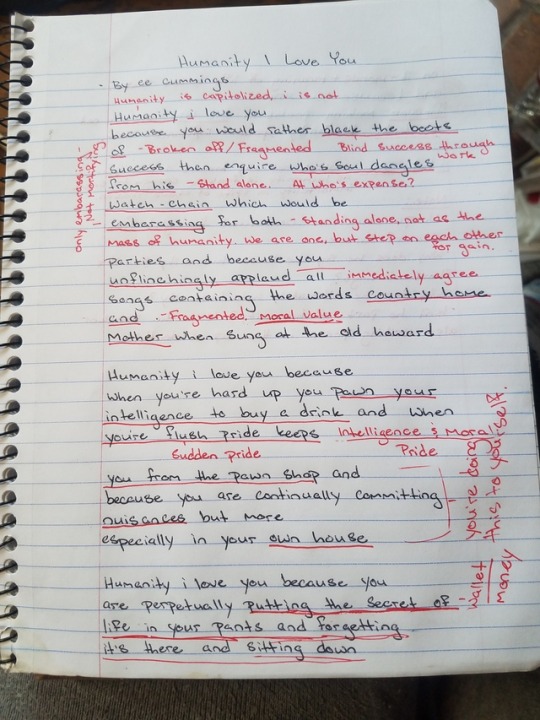 Humanity I Love You
- By ee cummings
Humanity is capitalized, i is not
Humanity i love you
because you would rather black the boots
of -Broken off/Fragmented Blind success through work
success than enquire who's soul dangles
from his -Stand alone. At who's expense?
Watch-chain which would be
embarassing for both -Standing alone, not as the
mass of humanity. We are one, but step on each other
for gain.
only embarassing-
Not mortifying
parties and because you
unflinchingly applaud all immediately agree
songs containing the words country home
and -Fragmented, moral value
Mother when sung at the old howard
Humanity i love you because
when you're hard up you pawn your
intelligence to buy a drink and when
you're flush pride keeps Intelligence & Moral
Sudden pride Pride
you from the pawn shop and
because you are continually committing
nuisances but more
especially in your own house
you're doing
this to yourself.
Humanity i love you because you
are perpetually putting the secret of -wallet
money
life in your pants and forgetting
it's there and sitting down